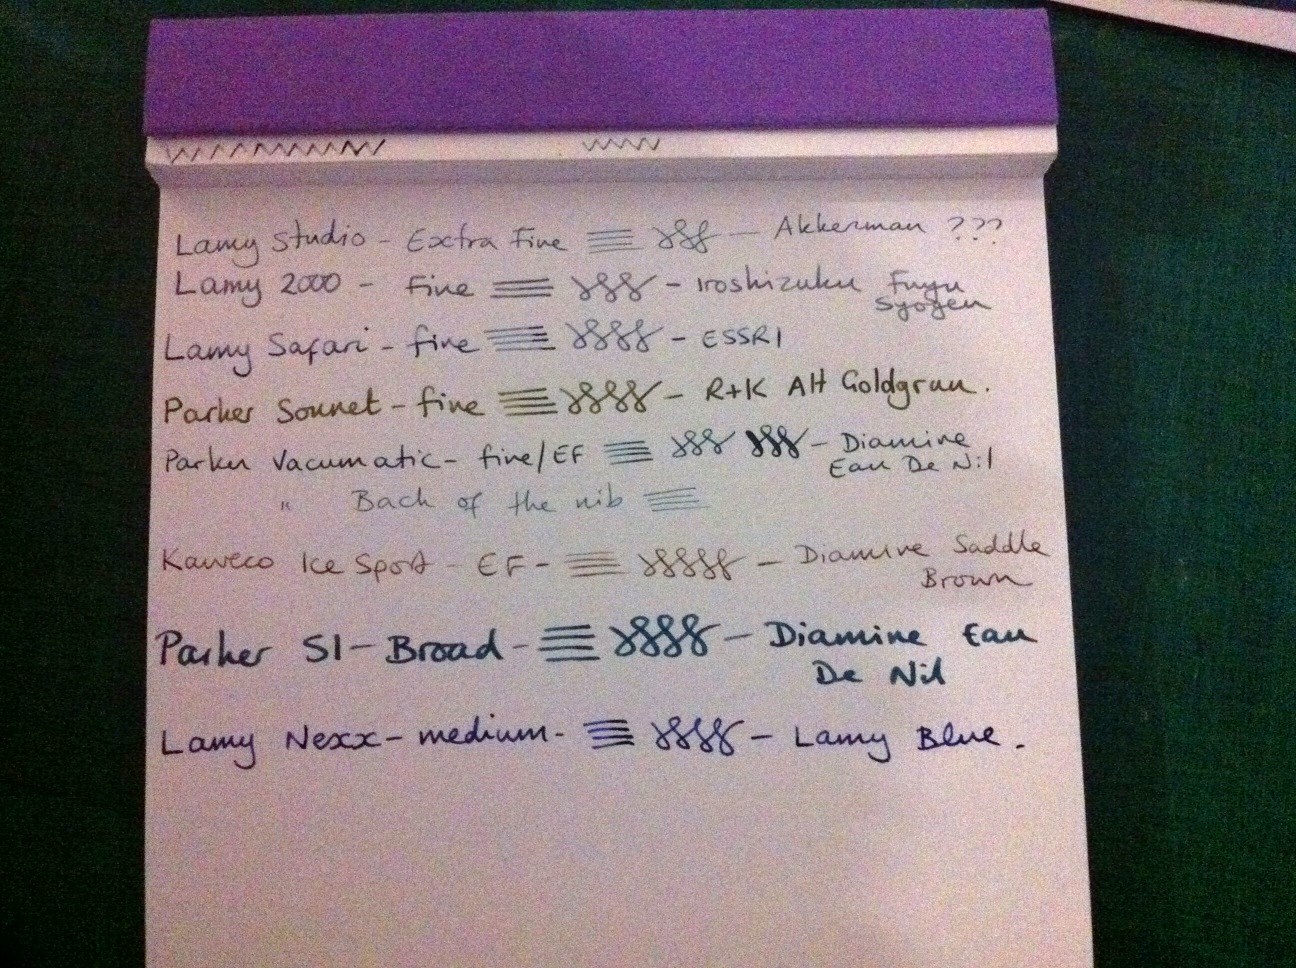 Lamy Studio - Extra Fine - Akkerman ???
Lamy 2000 - Fine - Iroshizuku Fuyu
Syogen
Lamy Safari - fine - ESSRI
Parker Sonnet - fine - R+K Alt Goldgrun.
Parker Vacumatic - fine/EF - Diamine
Eau De Nil
" Back of the nib
Kaweco Ice Sport - EF - Diamine Saddle
Brown
Parker 51 - Broad - Diamine Eau
De Nil
Lamy Nexx - medium - Lamy Blue.